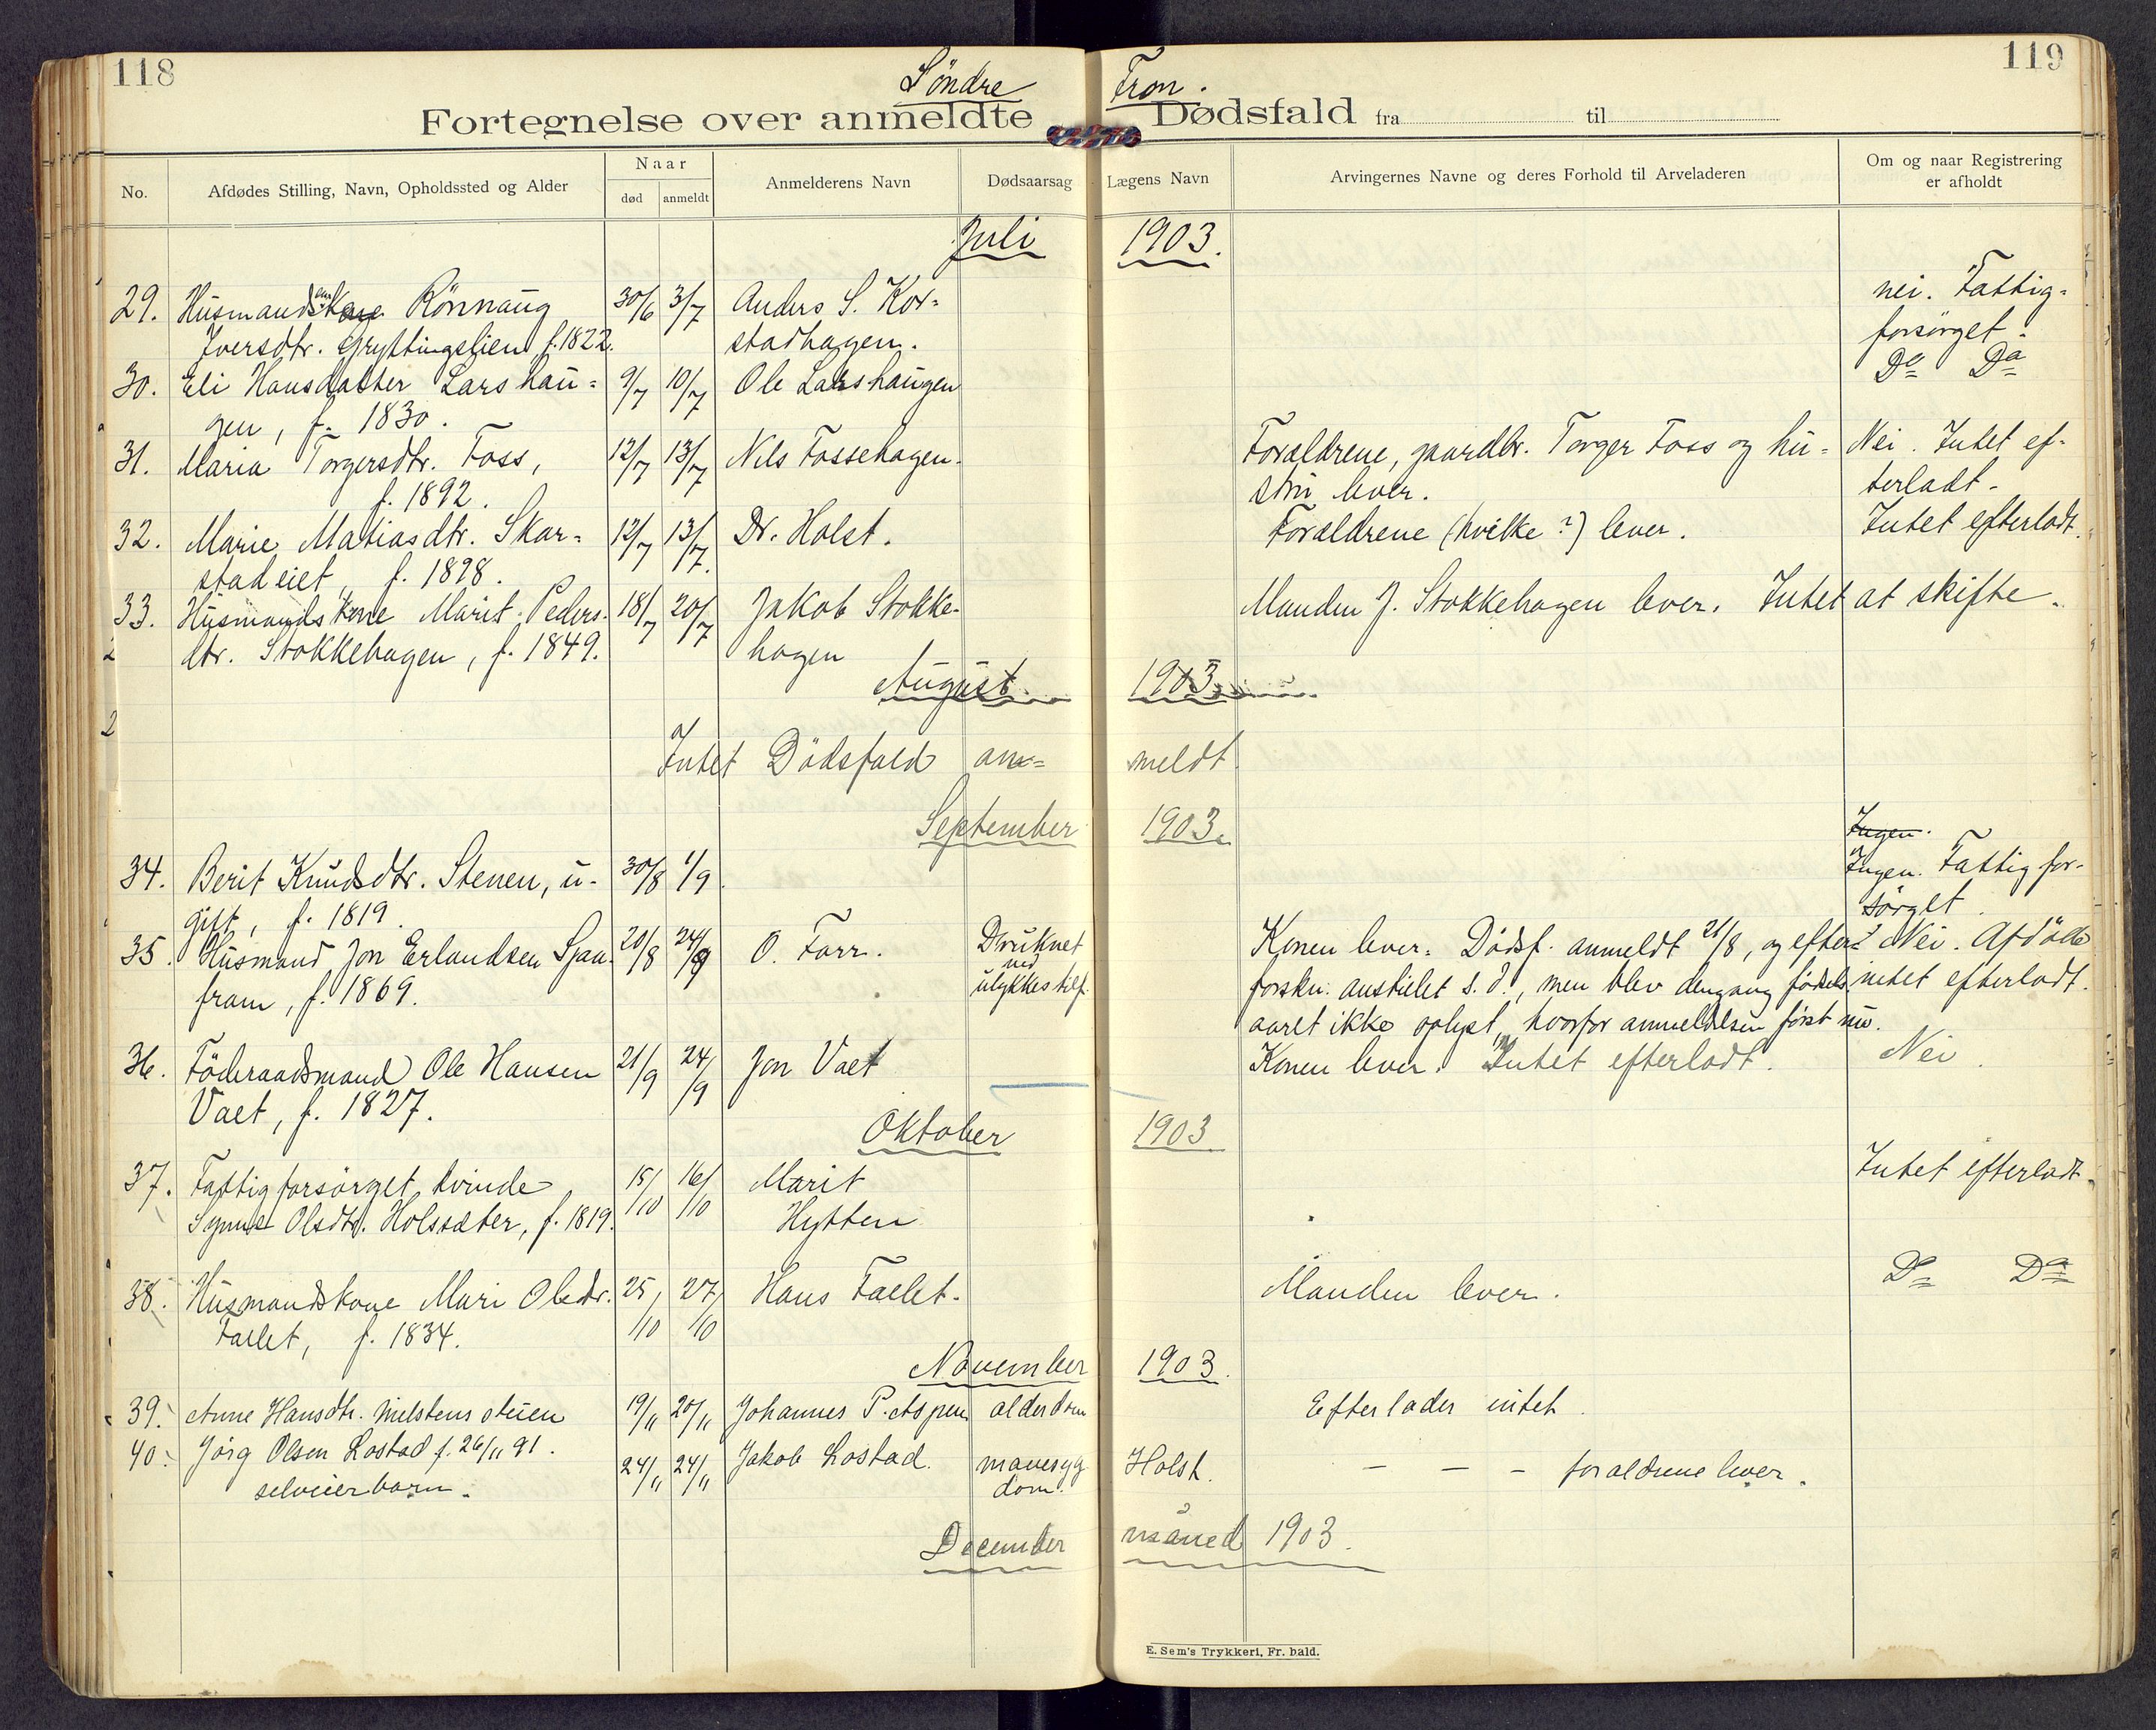 118
119
Söndre Fron.
Fortegnelse over anmeldte Dødsfald fra til
No.
Afdødes Stilling, Navn, Opholdssted og Alder
Naar
død
anmeldt
Anmelderens Navn
Dødsaarsag
Lægens Navn
Arvingernes Navne og deres Forhold til Arveladeren
Om og naar Registrering
er afholdt
Juli 1903.
29. Husmands Rönnaug 30/6 3/7 Anders S. Kor= nei. Fattig-
Iversdtr. Gryttingslien f. 1822. stadhagen. forsörget.
30. Eli Hansdatter Larshau= 9/7 10/7 Ole Larshaugen Do Do
gen, f. 1830.
31. Maria Torgersdtr. Foss, 12/7 13/7 Nils Fossehagen. Forældrene, gaardbr. Torger Foss og hu= Nei. Intet ef-
f. 1892. stru lever. terladt.
32. Marie Matiasdtr. Skar= 12/7 13/7. Dr. Holst. Forældrene (hvilke?) lever. Intet efterladt.
stadeiet, f. 1898.
33. Husmandskone Marit Peders- 18/7 20/7 Jakob Stokke- Manden J. Stokkehagen lever. Intet at skifte.
dtr. Stokkehagen, f. 1849. hagen
August. 1903.
Intet Dödsfald an= meldt
September 1903.
Ingen.
34. Berit Knudsdtr. Stenen, u- 30/8 1/9 Ingen. Fattigfor-
gift, f. 1819. sörget.
35. Husmand Jon Erlandsen Sjaa- 20/8 24/9 O. Farr. Druknet Konen lever. Dödsf. anmeldt 21/8, og efter- Nei. Afdöde
fram, f. 1869. ved ulykkestilf. forskn. anstillet s. d., men blev dengang födsels- intet efterladt.
aaret ikke oplyst, hvorfor anmeldelsen först nu.
36. Föderaadsmand Ole Hansen 21/9 24/9 Jon Vaet Konen lever. Intet efterladt. Nei.
Vaet, f. 1827.
Oktober 1903
37. Fattigforsörget kvinde 15/10 16/10 Marit Intet efterladt.
Synne Olsdtr. Holssæter, f. 1819. Hytten
38. Husmandskone Mari Olsdr. 25/10 27/10 Hans Faelet. Manden lever. Do Do
Faelet, f. 1834.
November 1903.
39. Anne Hansdtr. Milstensteien 19/11 20/11 Johannes P. Aspen alderdom Efterlader intet.
40. Jörg Olsen Lostad f. 26/11 91. 24/11 24/11 Jakob Lostad. mavesyg Holst. – – – forældrene lever.
selveierbarn. dom.
December måned 1903.
E. Sem's Trykkeri, Fr. hald.